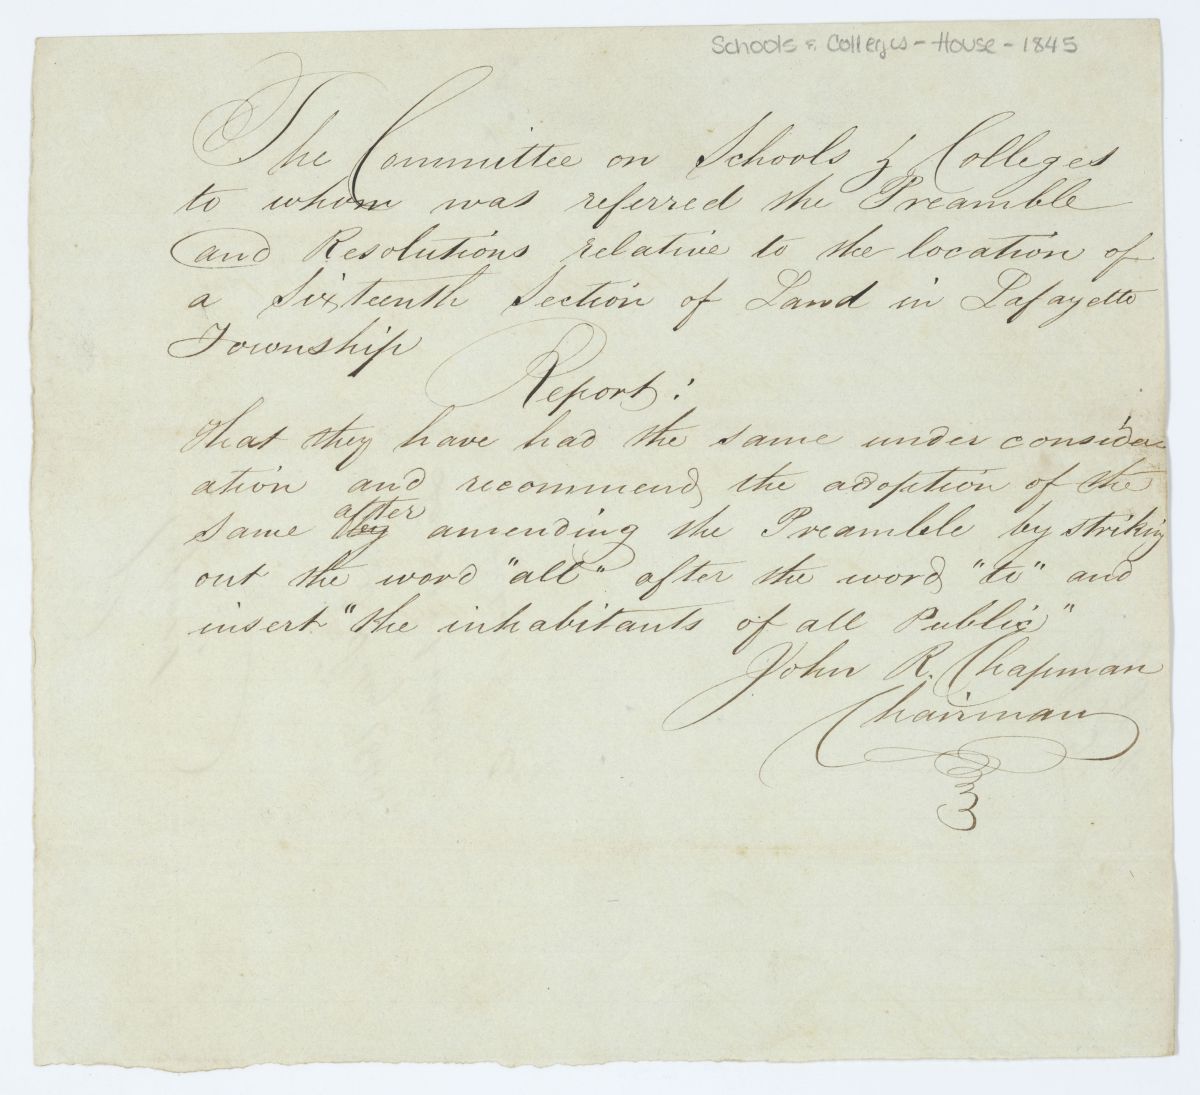 Schools & Colleges - House - 1845
The Committee on Schools & Colleges
to whom was referred the Preamble
and Resolutions relative to the location of
a Sixteenth Section of Land in Lafayette
Township
Report:
That they have had the same under consider
ation and recommend the adoption of the
after
same by amending the Preamble by striking
out the word "all" after the word "to" and
insert "the inhabitants of all Public"
John R. Chapman
Chairman